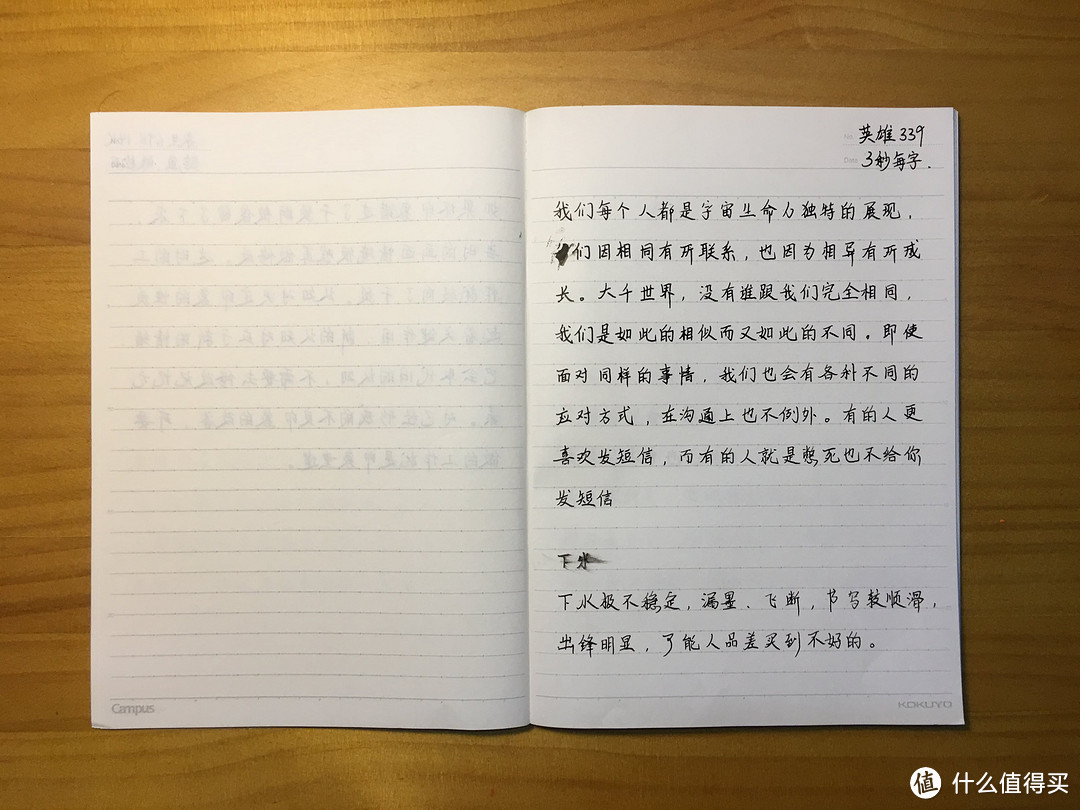 英雄 339
3秒每字.
我们每个人都是宇宙生命力独特的展现，
们因相同有所联系，也因为相异有所成
长。大千世界，没有谁跟我们完全相同，
我们是如此的相似而又如此的不同。即使
面对同样的事情，我们也会有各种不同的
应对方式，在沟通上也不例外。有的人更
喜欢发短信，而有的人就是憋死也不给你
发短信
下水
下水极不稳定，漏墨、飞断，书写较顺滑，
出锋明显，可能人品差买到不好的。
Campus
KOKUYO
值 什么值得买